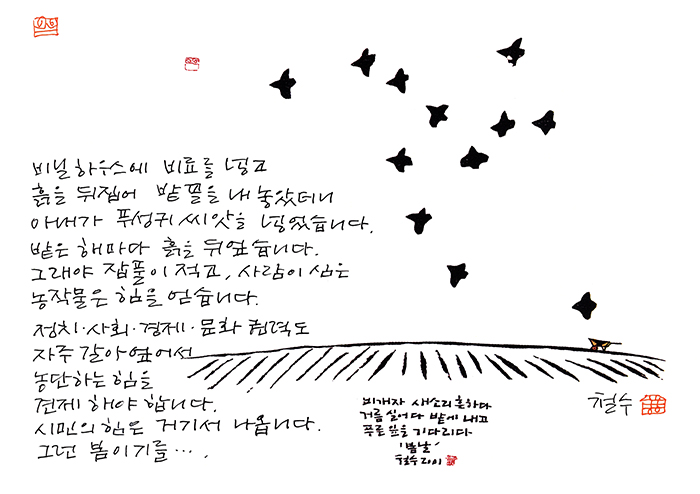 비닐하우스에 비료를 넣고
흙을 뒤집어 밭 꼴을 내 놓았더니
아내가 푸성귀 씨앗을 넣었습니다.
밭은 해마다 흙을 뒤엎습니다.
그래야 잡풀이 적고, 사람이 심은
농작물은 힘을 얻습니다.
정치·사회·경제·문화 권력도
자주 갈아엎어서
농단하는 힘을
견제 해야 합니다.
시민의 힘은 거기서 나옵니다.
그런 봄이기를….
비개자 새소리 흔하다
거름 실어다 밭에 내고
푸른 잎을 기다리다
'봄날'
철수
철수